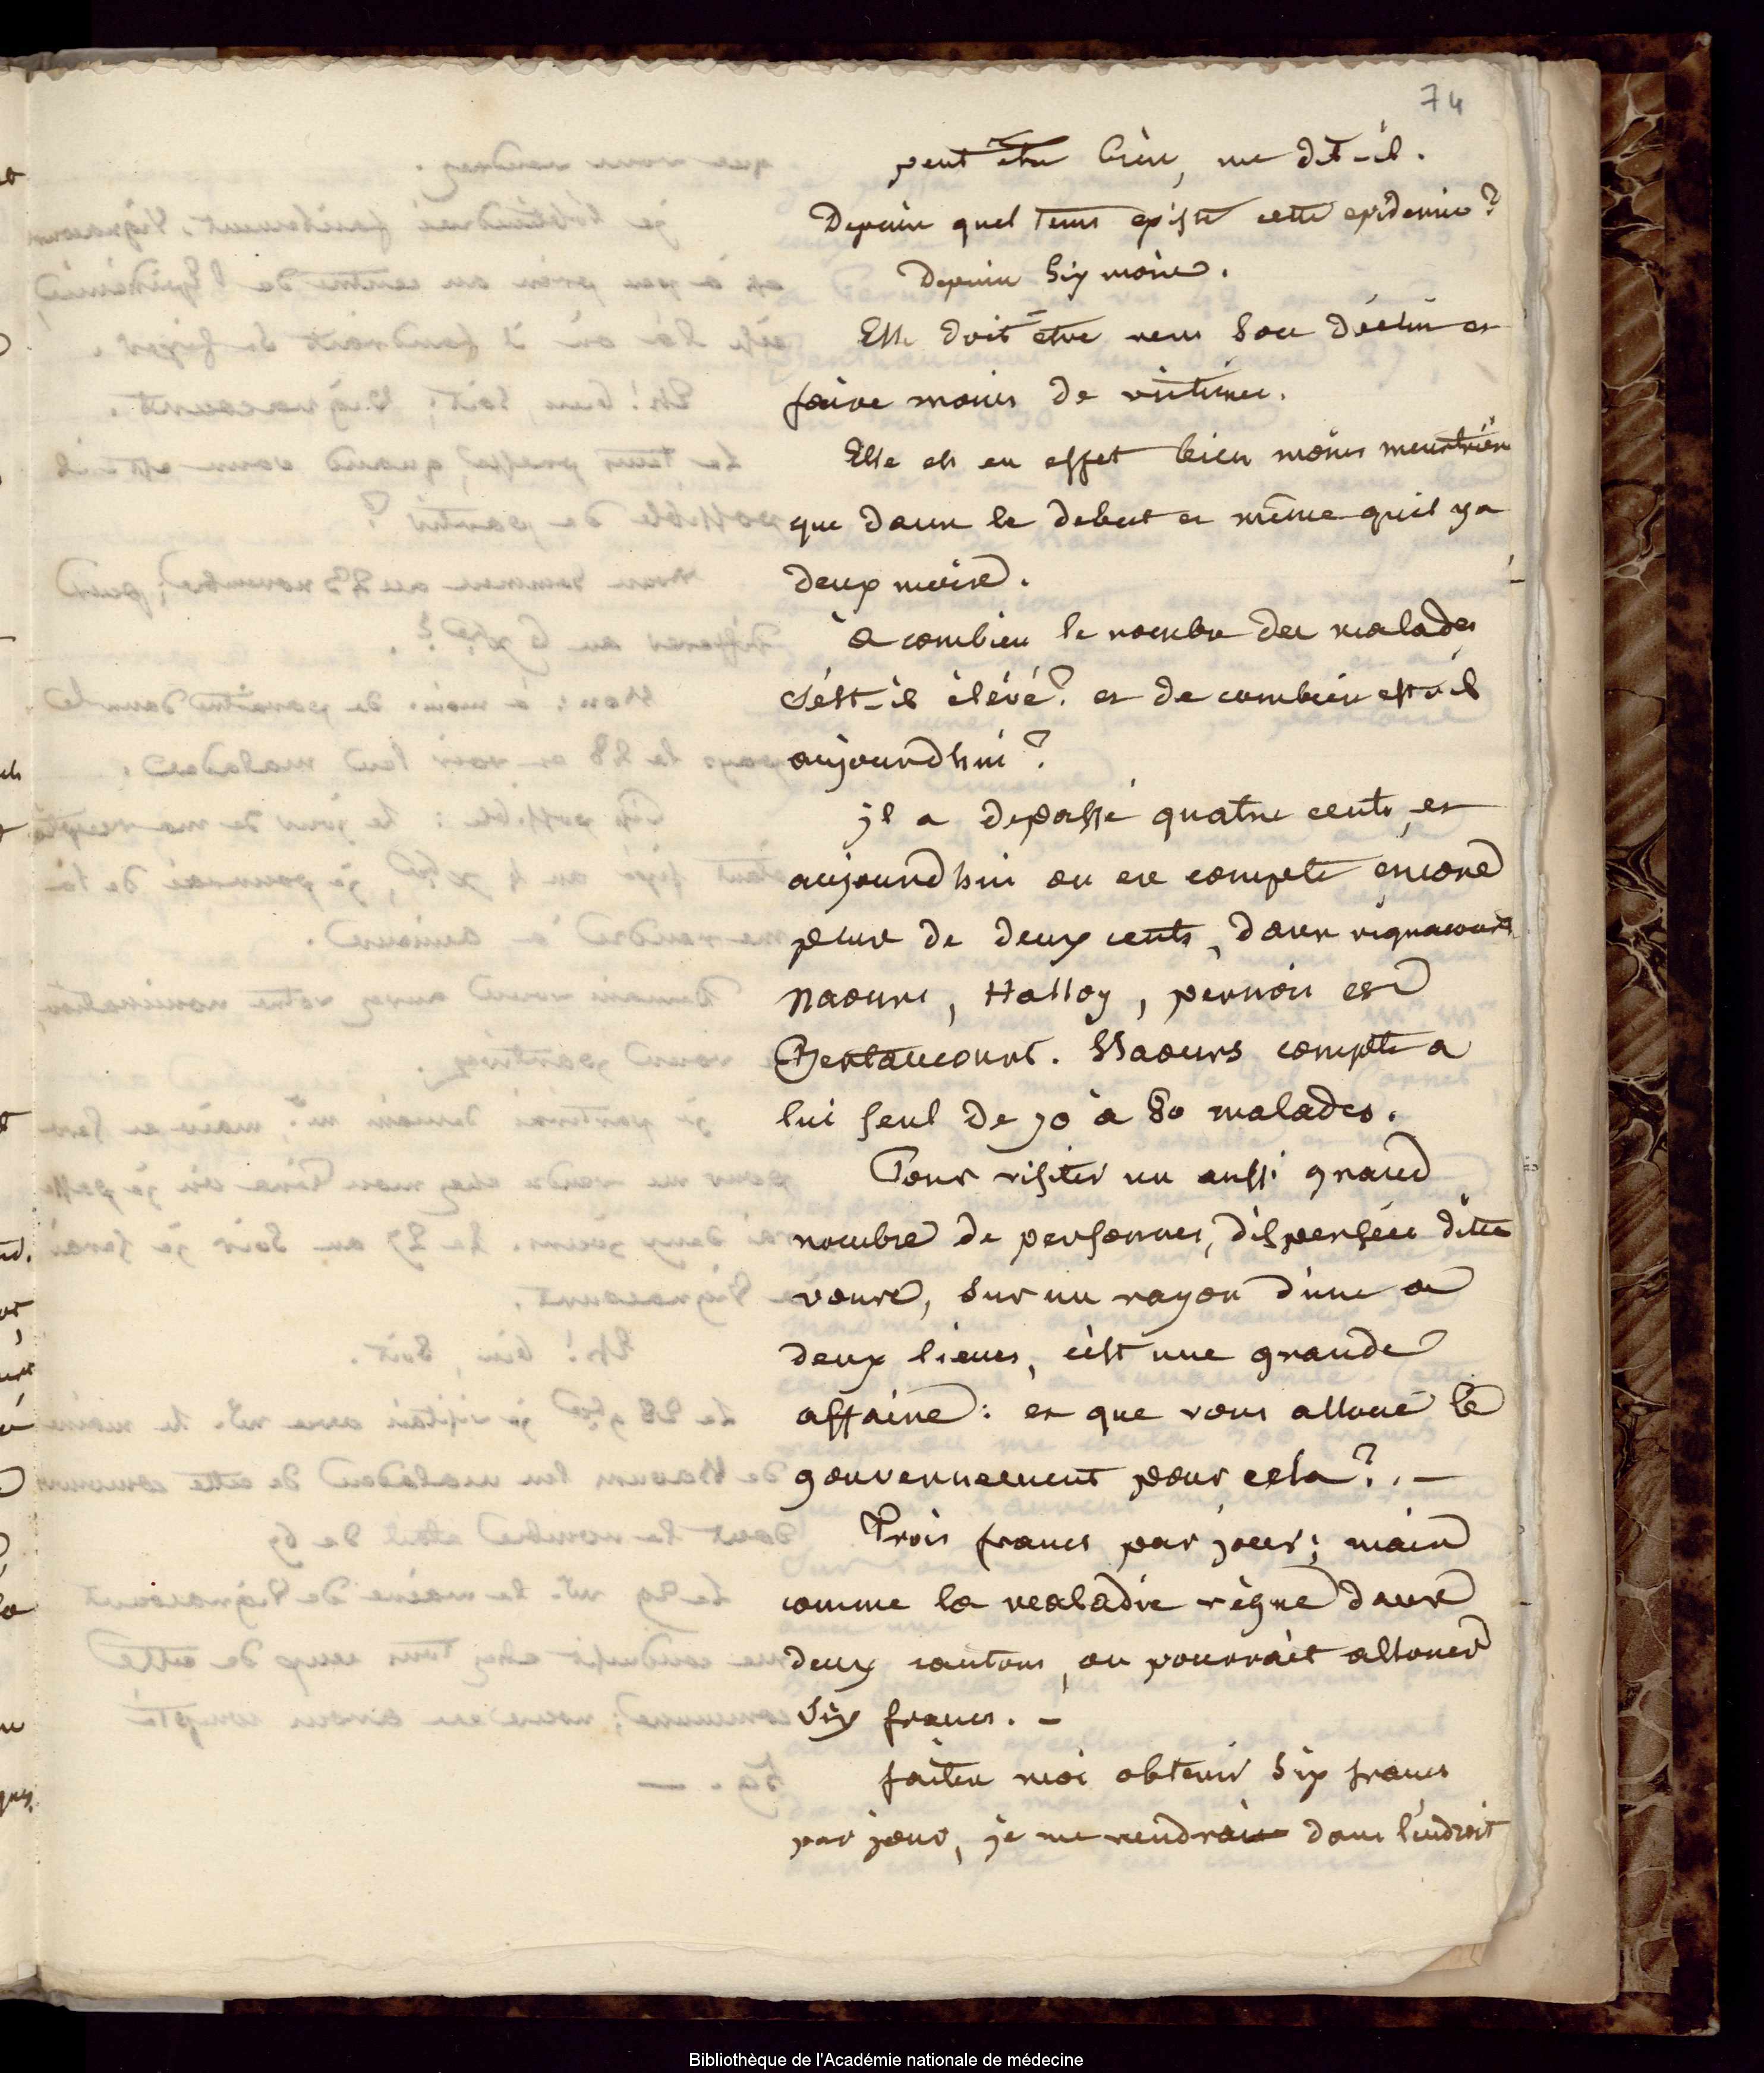 74
peut être bien, me dit-il.
Depuis quel tems existe cette epidemie?
Depuis Six mois.
Elle doit être vers Son déclin et
faire moins de victimes.
Elle est en effet bien moins meurtrière
que dans le debut et même qu'il y a
deux mois.
à combien le nombre des malades
s'est-il élévé? et de combien est-il
aujourdhui?
il a depassé quatre cents, et
aujourdhui on en compte encore
plus de deux cents, dans vignacourt
Naours, Halloy, pernois et
Bertaucourt. Naours compte a
lui seul de 70 à 80 malades.
Pour visiter un aussi grand
nombre de personnes, dispersées dites
vous, sur un rayon d'une a
deux lieues, c'est une grande
affaire: et que vous alloue le
gouvernement pour cela?. -
Trois francs par jour; mais
comme la maladie règne dans
deux cantons, on pourrait allouer
Six francs. -
faites moi obtenir Six francs
par jour, je me rendrais dans l'endroit
Bibliothèque de l'Académie nationale de médecine